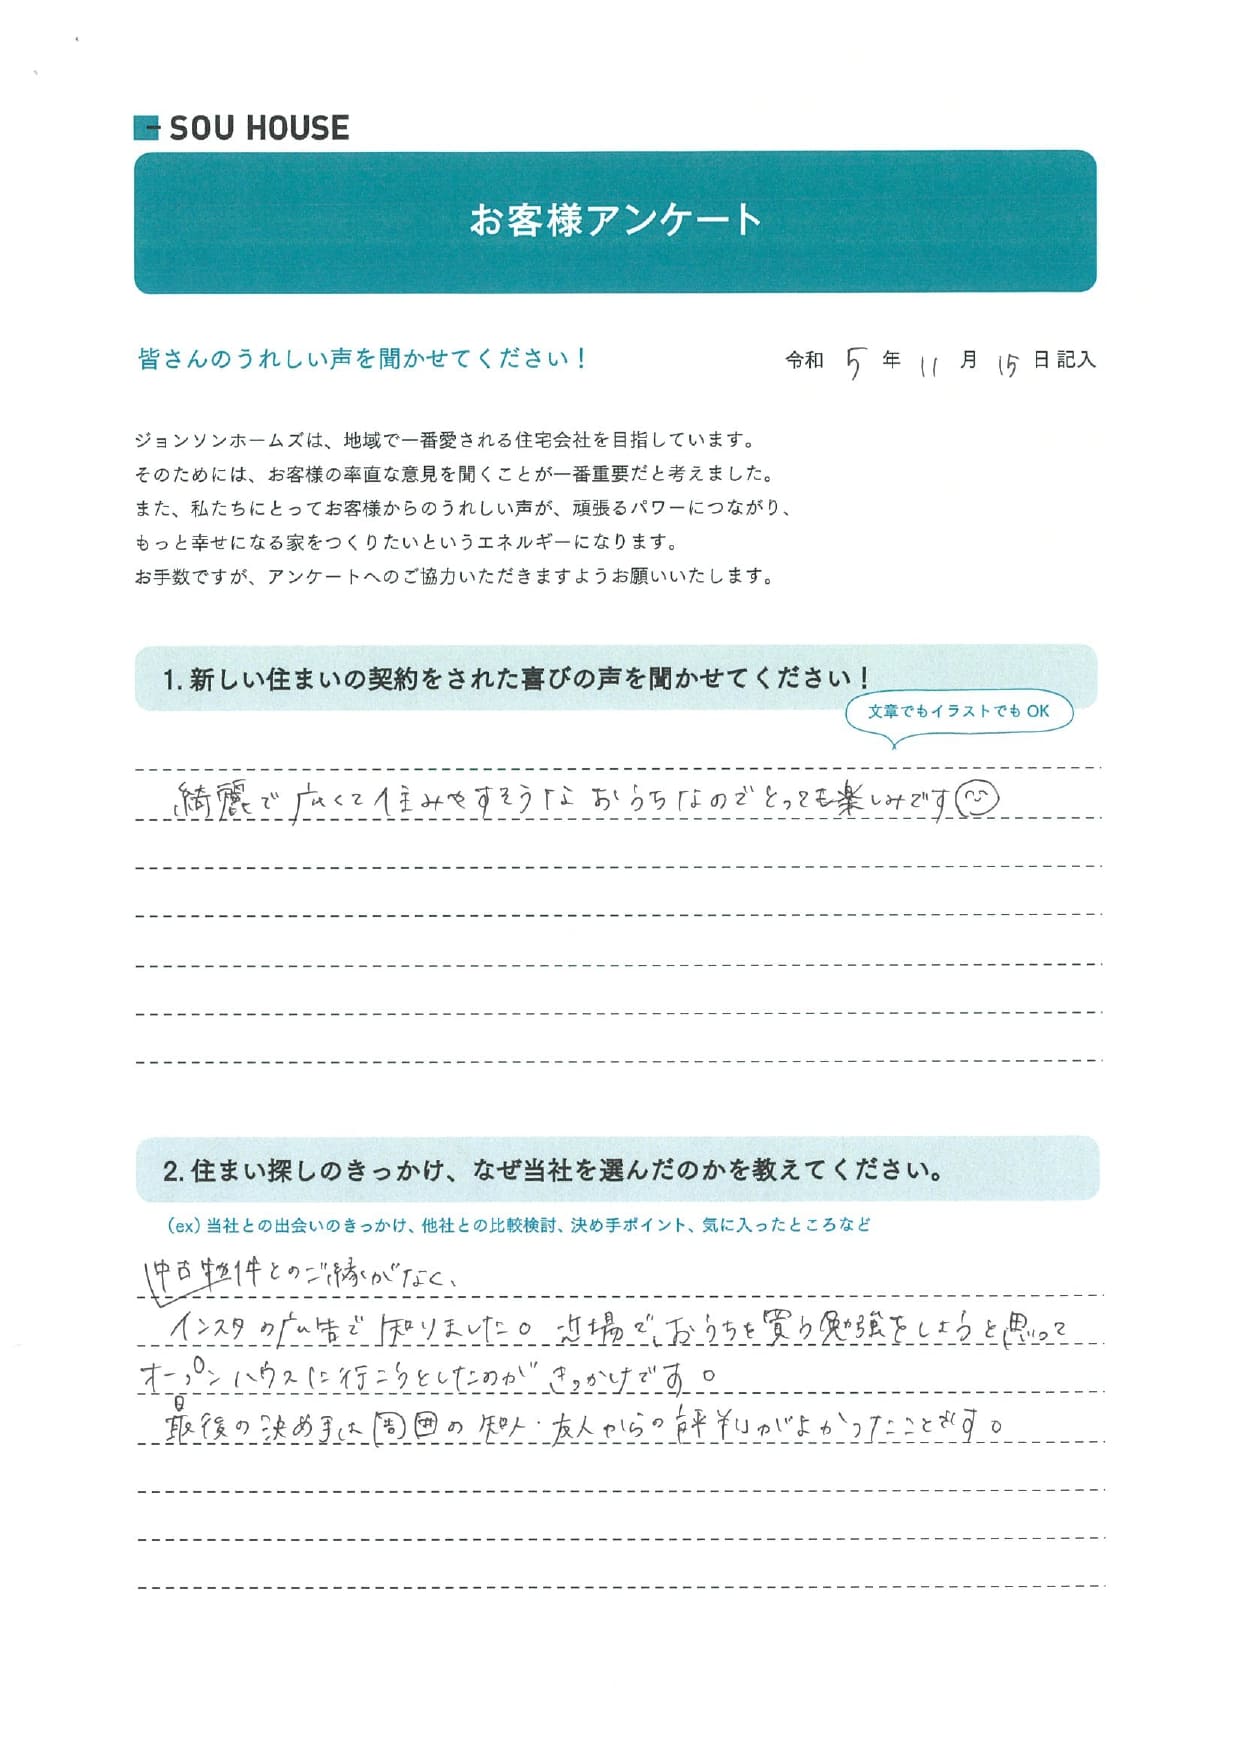 SOU HOUSE
お客様アンケート
皆さんのうれしい声を聞かせてください！
令和 5 年 11 月 15 日記入
ジョンソンホームズは、地域で一番愛される住宅会社を目指しています。
そのためには、お客様の率直な意見を聞くことが一番重要だと考えました。
また、私たちにとってお客様からのうれしい声が、頑張るパワーにつながり、
もっと幸せになる家をつくりたいというエネルギーになります。
お手数ですが、アンケートへのご協力いただきますようお願いいたします。
1. 新しい住まいの契約をされた喜びの声を聞かせてください！
文章でもイラストでも OK
綺麗で広くて住みやすそうなおうちなのでとっても楽しみです
2. 住まい探しのきっかけ、なぜ当社を選んだのかを教えてください。
（ex）当社との出会いのきっかけ、他社との比較検討、決め手ポイント、気に入ったところなど
中古物件とのご縁がなく、
インスタの広告で知りました。近場で、おうちを買う勉強をしようと思って
オープンハウスに行こうとしたのがきっかけです。
最後の決め手は周囲の知人・友人からの評判がよかったことです。